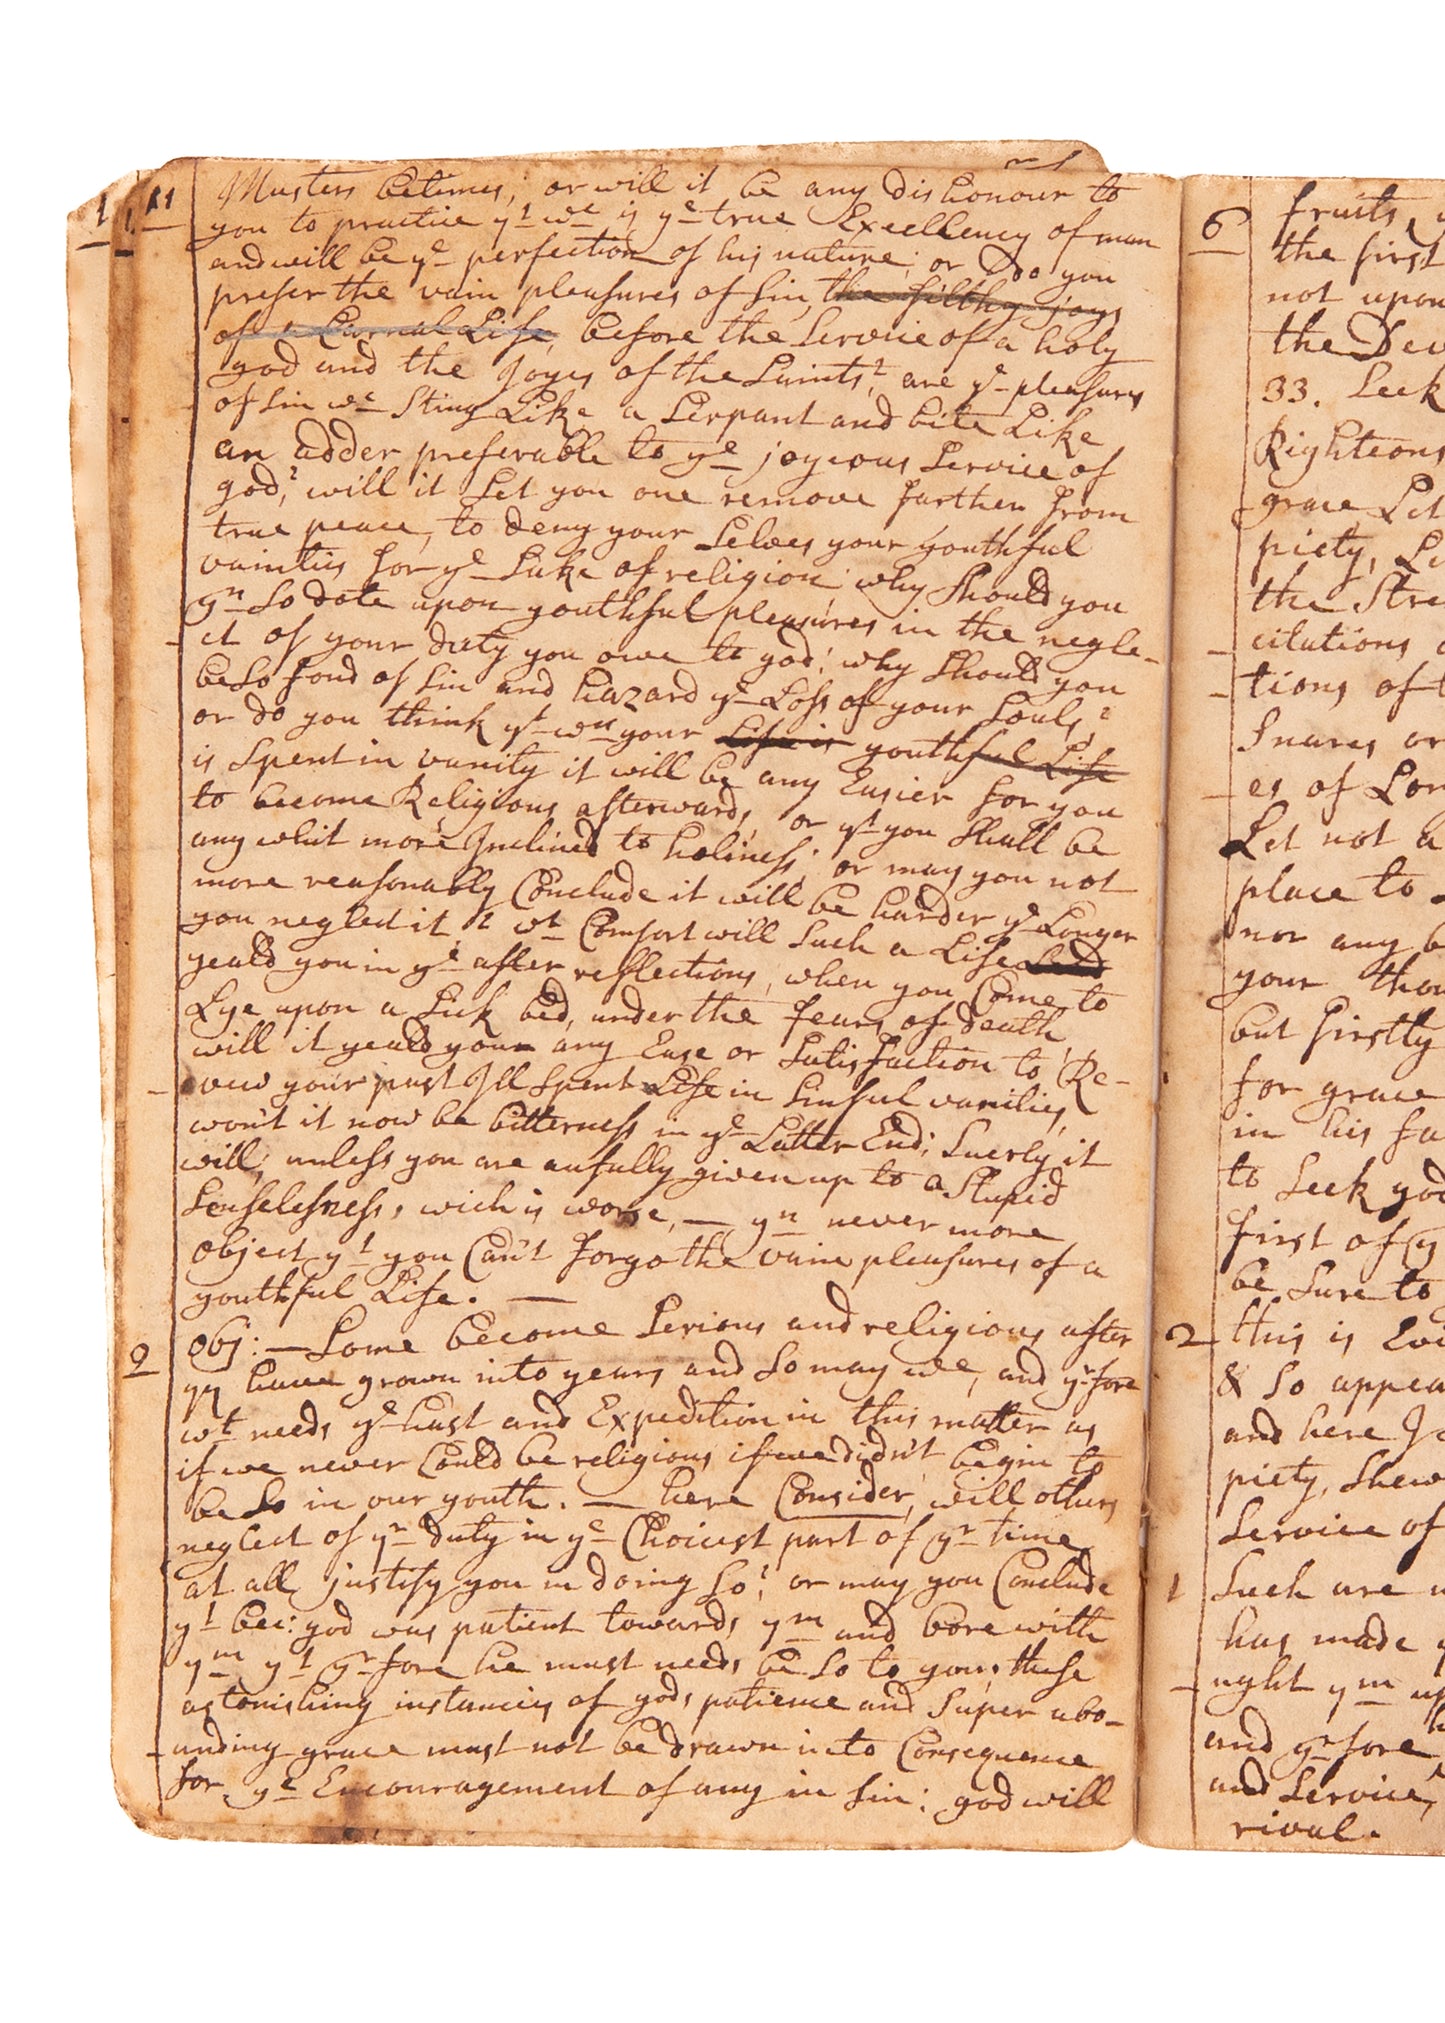 11
Masters betimes; or will it be any dishonour to
you to practice yt wc is ye true Excellency of man
and will be ye perfection of his nature; or Do you
prefer the vain pleasures of Sin, the filthy joys
of a Carnal Life, before the Service of a holy
god and the Joyes of the Saints? are ye pleasures
of Sin wc Sting Like a Serpant and bite Like
an adder preferable to ye joyeous Service of
god? will it Set you one remove farther from
true peace, to Deny your Selves your youthful
vainties for ye Sake of religion; why Should you
yn So dote upon youthful pleasures in the negle-
ct of your duty you owe to god; why Should you
be So fond of Sin and hazard ye Loss of your Souls?
or do you think yt wn your Life is youthful Life
is Spent in vanity it will be any Easier for you
to become Religious afterward, or yt you Shall be
any whit more Inclined to holiness; or may you not
more reasonably Conclude it will be harder ye Longer
you neglect it? wt Comfort will Such a Life Lead
yeald you in ye after reflections, when you Come to
Lye upon a Sick bed, under the fears of death,
will it yeald your any Ease or Satisfaction to Re-
vew your past Ill Spent Life in Sinful vanities,
won't it now be bitterness in ye Latter End; Suerly it
will, unless you are aufully given up to a Stupid
Senselesness, wich is worse, — yn never more
object yt you Can't forgo the vain pleasures of a
youthful Life. —
2 obj: — Some become Serious and religious after
yy have grown into years and So may we, and yrfore
wt needs ye hast and Expedition in this matter as
if we never Could be religious if we didn't begin to
be So in our youth. — here Consider, will others
neglect of yr duty in ye Choicest part of yr time
at all justify you in doing So? or may you Conclude
yt bec: god was patient towards ym and bore with
ym yt yrfore he must needs be So to you, these
astonishing instancies of gods patience and Super abo-
unding grace must not be drawn into Consequence
for ye Encouragement of any in Sin: god will
6
fruits,
the first
not upon
the Dev
33. Seek
Righteous
grace Let
piety,
the Stre
citations
tions of
Snares or
es of
Let not a
place to
nor any
your
but firstly
for grace
in his
to Seek god
first of
be Sure to
2 this is
& So appea
and here
piety, Shew
Service of
1 Such are
has made
ught ym up
and yrfore
and Service,
rival.